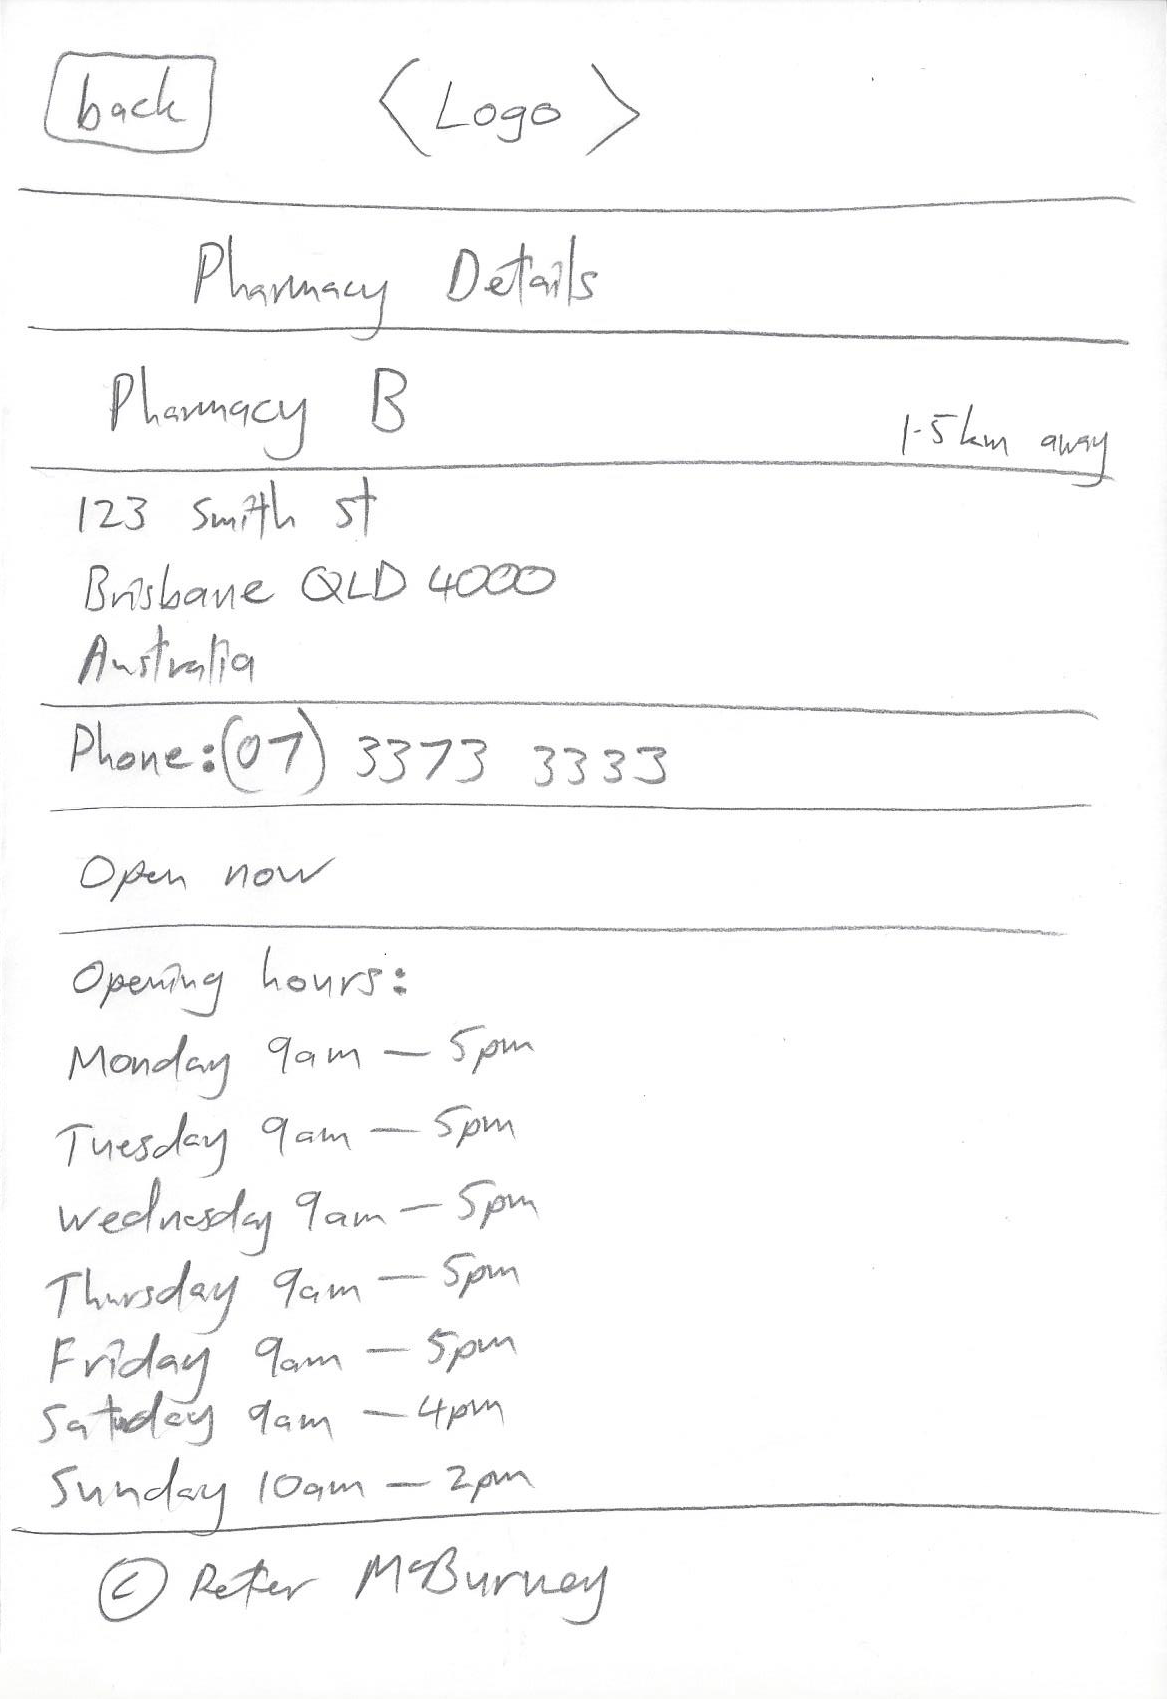 back
<Logo>
Pharmacy Details
Pharmacy B
1.5km away
123 Smith St
Brisbane QLD 4000
Australia
Phone: (07) 3373 3333
Open now
Opening hours:
Monday 9am – 5pm
Tuesday 9am – 5pm
Wednesday 9am – 5pm
Thursday 9am – 5pm
Friday 9am – 5pm
Saturday 9am – 4pm
Sunday 10am – 2pm
© Peter McBurney